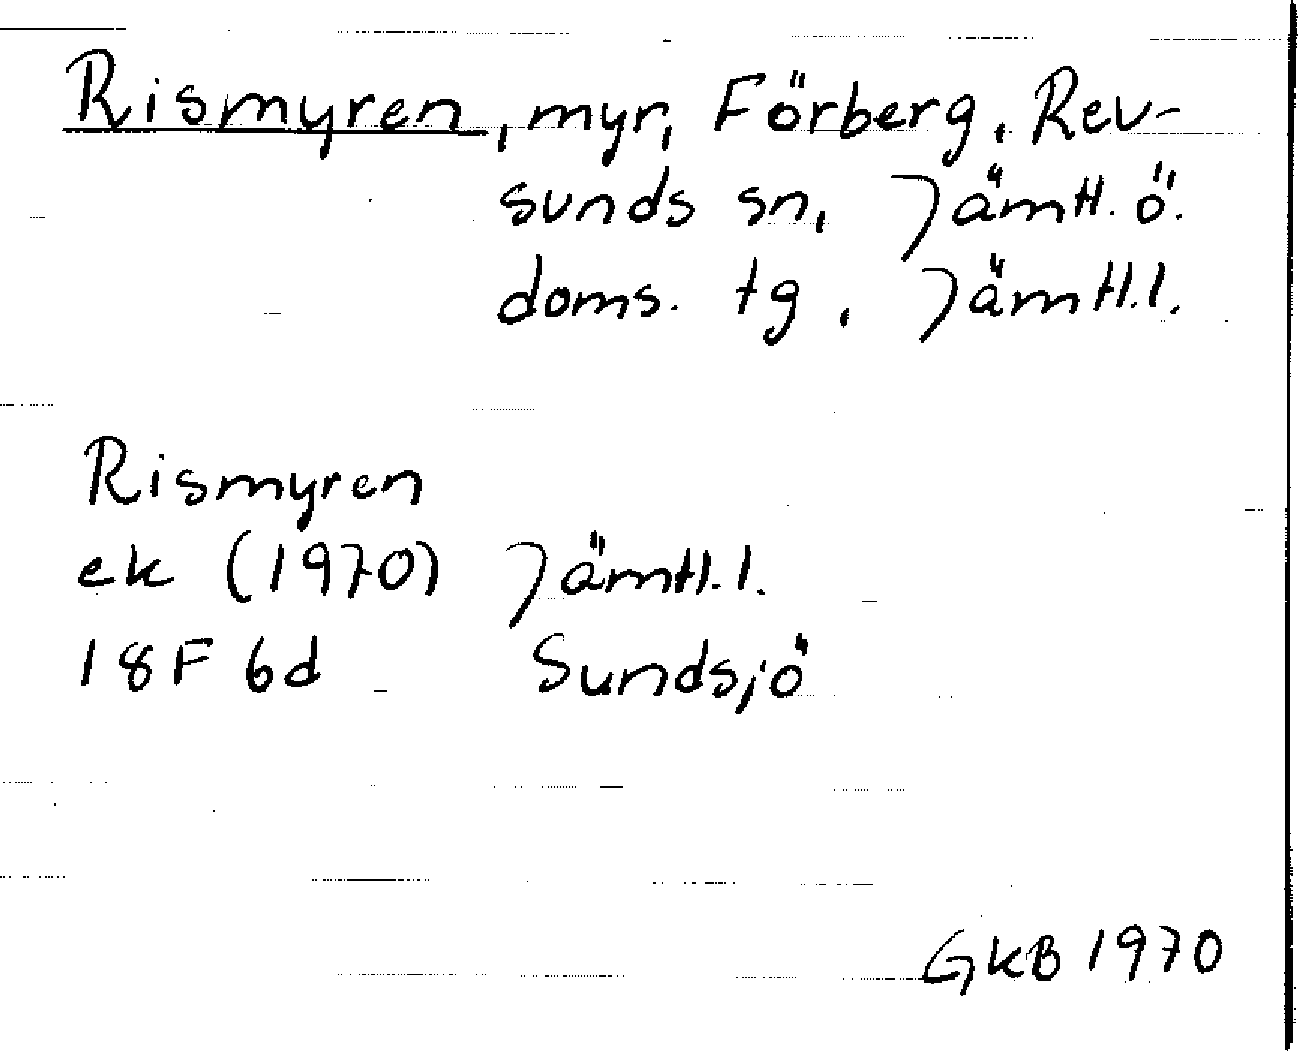 Rismyren, myr, Förberg, Rev-
sunds sn, Jämtl. ö.
doms. tg, Jämtl.l.
Rismyren
ek (1970) Jämtl.l.
18F 6d Sundsjö
GKB 1970